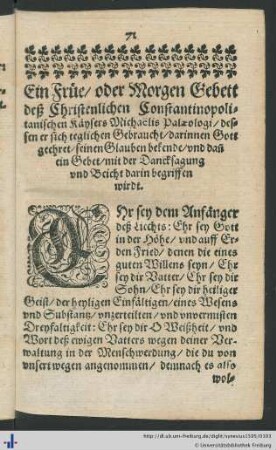 71
Ein Früe/ oder Morgen Gebett
deß Christenlichen Constantinopoli-
tanischen Käysers Michaelis Palæologi/ des-
sen er sich teglichen Gebraucht/ darinnen Gott
geehret/ seinen Glauben bekende/ und dañ
ein Gebet/ mit der Dancksagung
und Beicht darin begriffen
wirdt.
EHr sey dem Anfänger
deß Liechts: Ehr sey Gott
in der Höhe/ und auff Er-
den Fried/ denen die eines
guten Willens seyn/ Ehr
sey dir Vatter/ Ehr sey dir
Sohn/ Ehr sey dir heiliger
Geist/ der heyligen Einfältigen/ eines Wesens
und Substantz/ unzerteilten/ und unvermisten
Dreyfaltigkeit: Ehr sey dir O Weißheit/ und
Wort deß ewigen Vatters wegen deiner Ver-
waltung in der Menschwerdung/ die du von
unsert wegen angenommen/ demnach es also
wol-
http://dl.ub.uni-freiburg.de/diglit/synesius1595/0103
© Universitätsbibliothek Freiburg